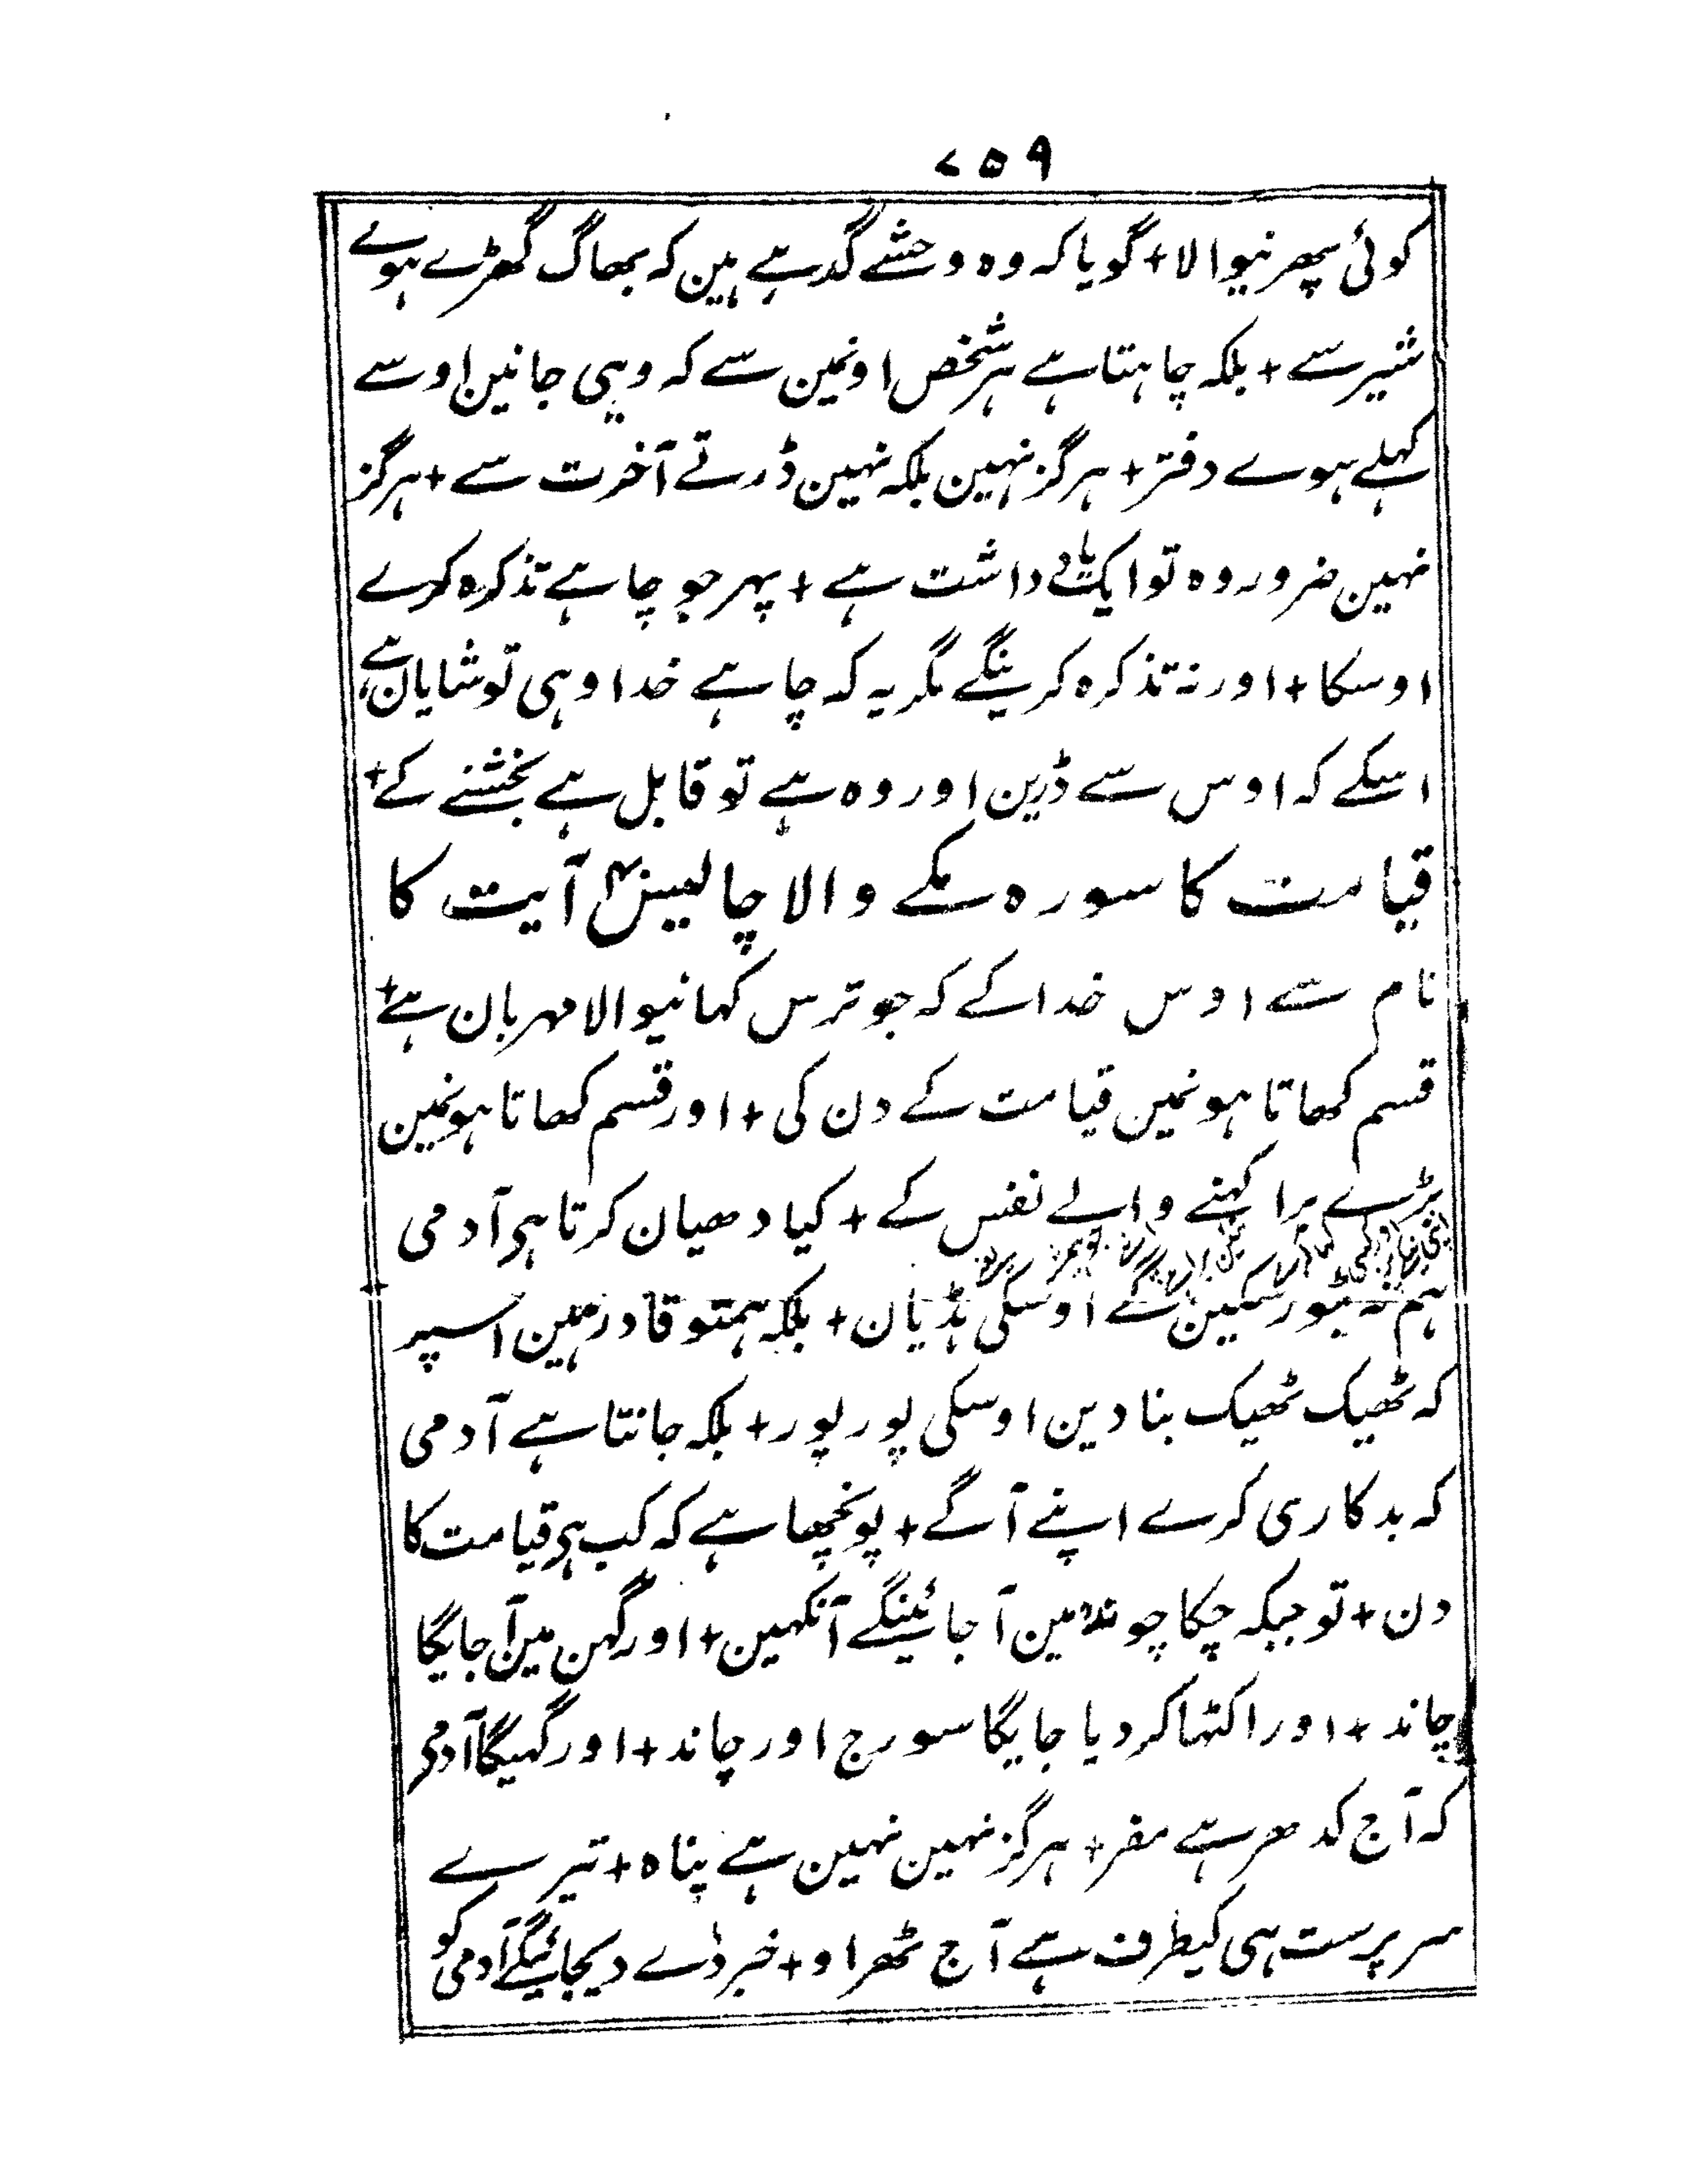 ۷۵۹
کوئی پھر نیوالا + گویا کہ وہ وحشے گدہے ہین کہ بھاگ کھڑے ہوے
شیر سے + بلکہ چاہتا ہے ہر شخص اونمین سے کہ ویہی جائین اوسے
کہلے ہوے دفتر + ہرگز نہین بلکہ نہین ڈرتے آخرت سے + ہرگز
نہین ضرور وہ تو ایک داشت ہے + پہر جو چاہے تذکرہ کرے
اوسکا + اور نہ تذکرہ کرینگے مگر یہ کہ چاہے خدا وہی تو شایان ہے
اسکے کہ اوس سے ڈرین اور وہ ہے تو قابل ہے بخشنے کے +
قیامت کا سورہ مکے والا چالیس۴۰ آیت کا
نام سے اوس خدا کے کہ جو ترس کہانیوالا مہربان ہے +
قسم کھاتا ہونمین قیامت کے دن کی + اور قسم کھاتا ہونمین
بڑے برا کہنے والے نفس کے + کیا دھیان کرتا ہی آدمی
ہم نہ بٹور سکین گے اوسکی ہڈیان + بلکہ ہمتو قادر ہین اسپر
کہ ٹھیک ٹھیک بنا دین اوسکی پور پور + بلکہ جانتا ہے آدمی
کہ بدکاری کرے اپنے آگے + پونچھا ہے کہ کب ہی قیامت کا
دن + تو جبکہ چکا چوند مین آ جائینگے آنکہین + اور گہن مین آ جایگا
چاند + اور اکٹہا کر دیا جایگا سورج اور چاند + اور کہیگا آدمی
کہ آج کدھر ہے مفر + ہرگز نہین نہین ہے پناہ + تیرے
سرپرست ہی کیطرف ہے آج ٹھراو + خبر دے دیجائیگے آدمی کو